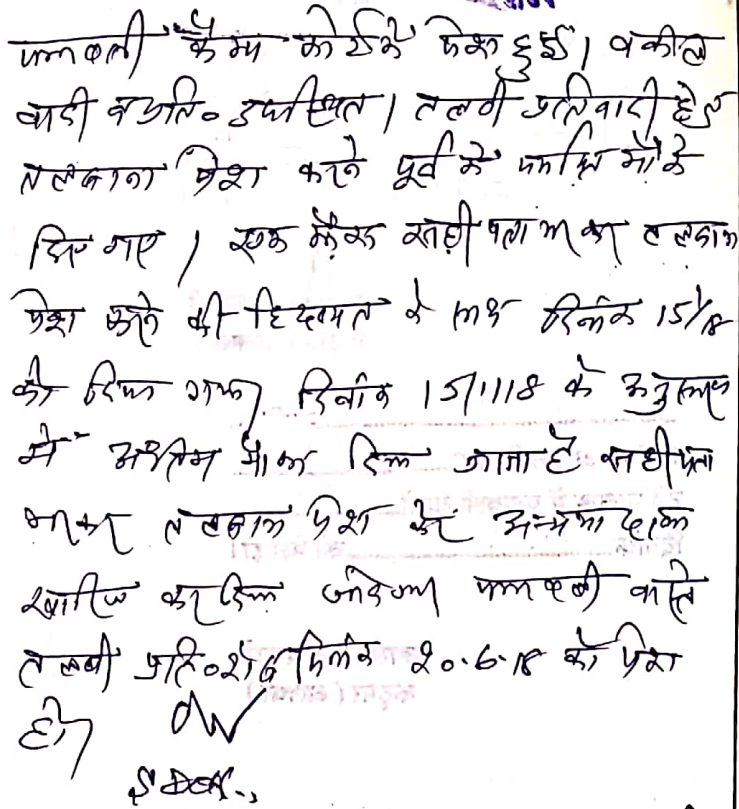 पत्रावली कैम्प कोर्ट में पेश हुई। वकील
वादी व प्रति० उपस्थित। तलबी प्रतिवादी हेतु
तलबाना पेश करने पूर्व में पर्याप्त मौके
दिए गए। एक सही पता मय तलबाना
पेश करने की हिदायत के साथ दिनांक 15/1/18
को दिया गया। दिनांक 15/1/18 के अनुसरण
में अंतिम मौका दिया जाता है सही पता
तलबाना पेश करें अन्यथा दावा
खारिज कर दिया जावेगा पत्रावली वास्ते
तलबी प्रति० दिनांक 20.6.18 को पेश
हो।